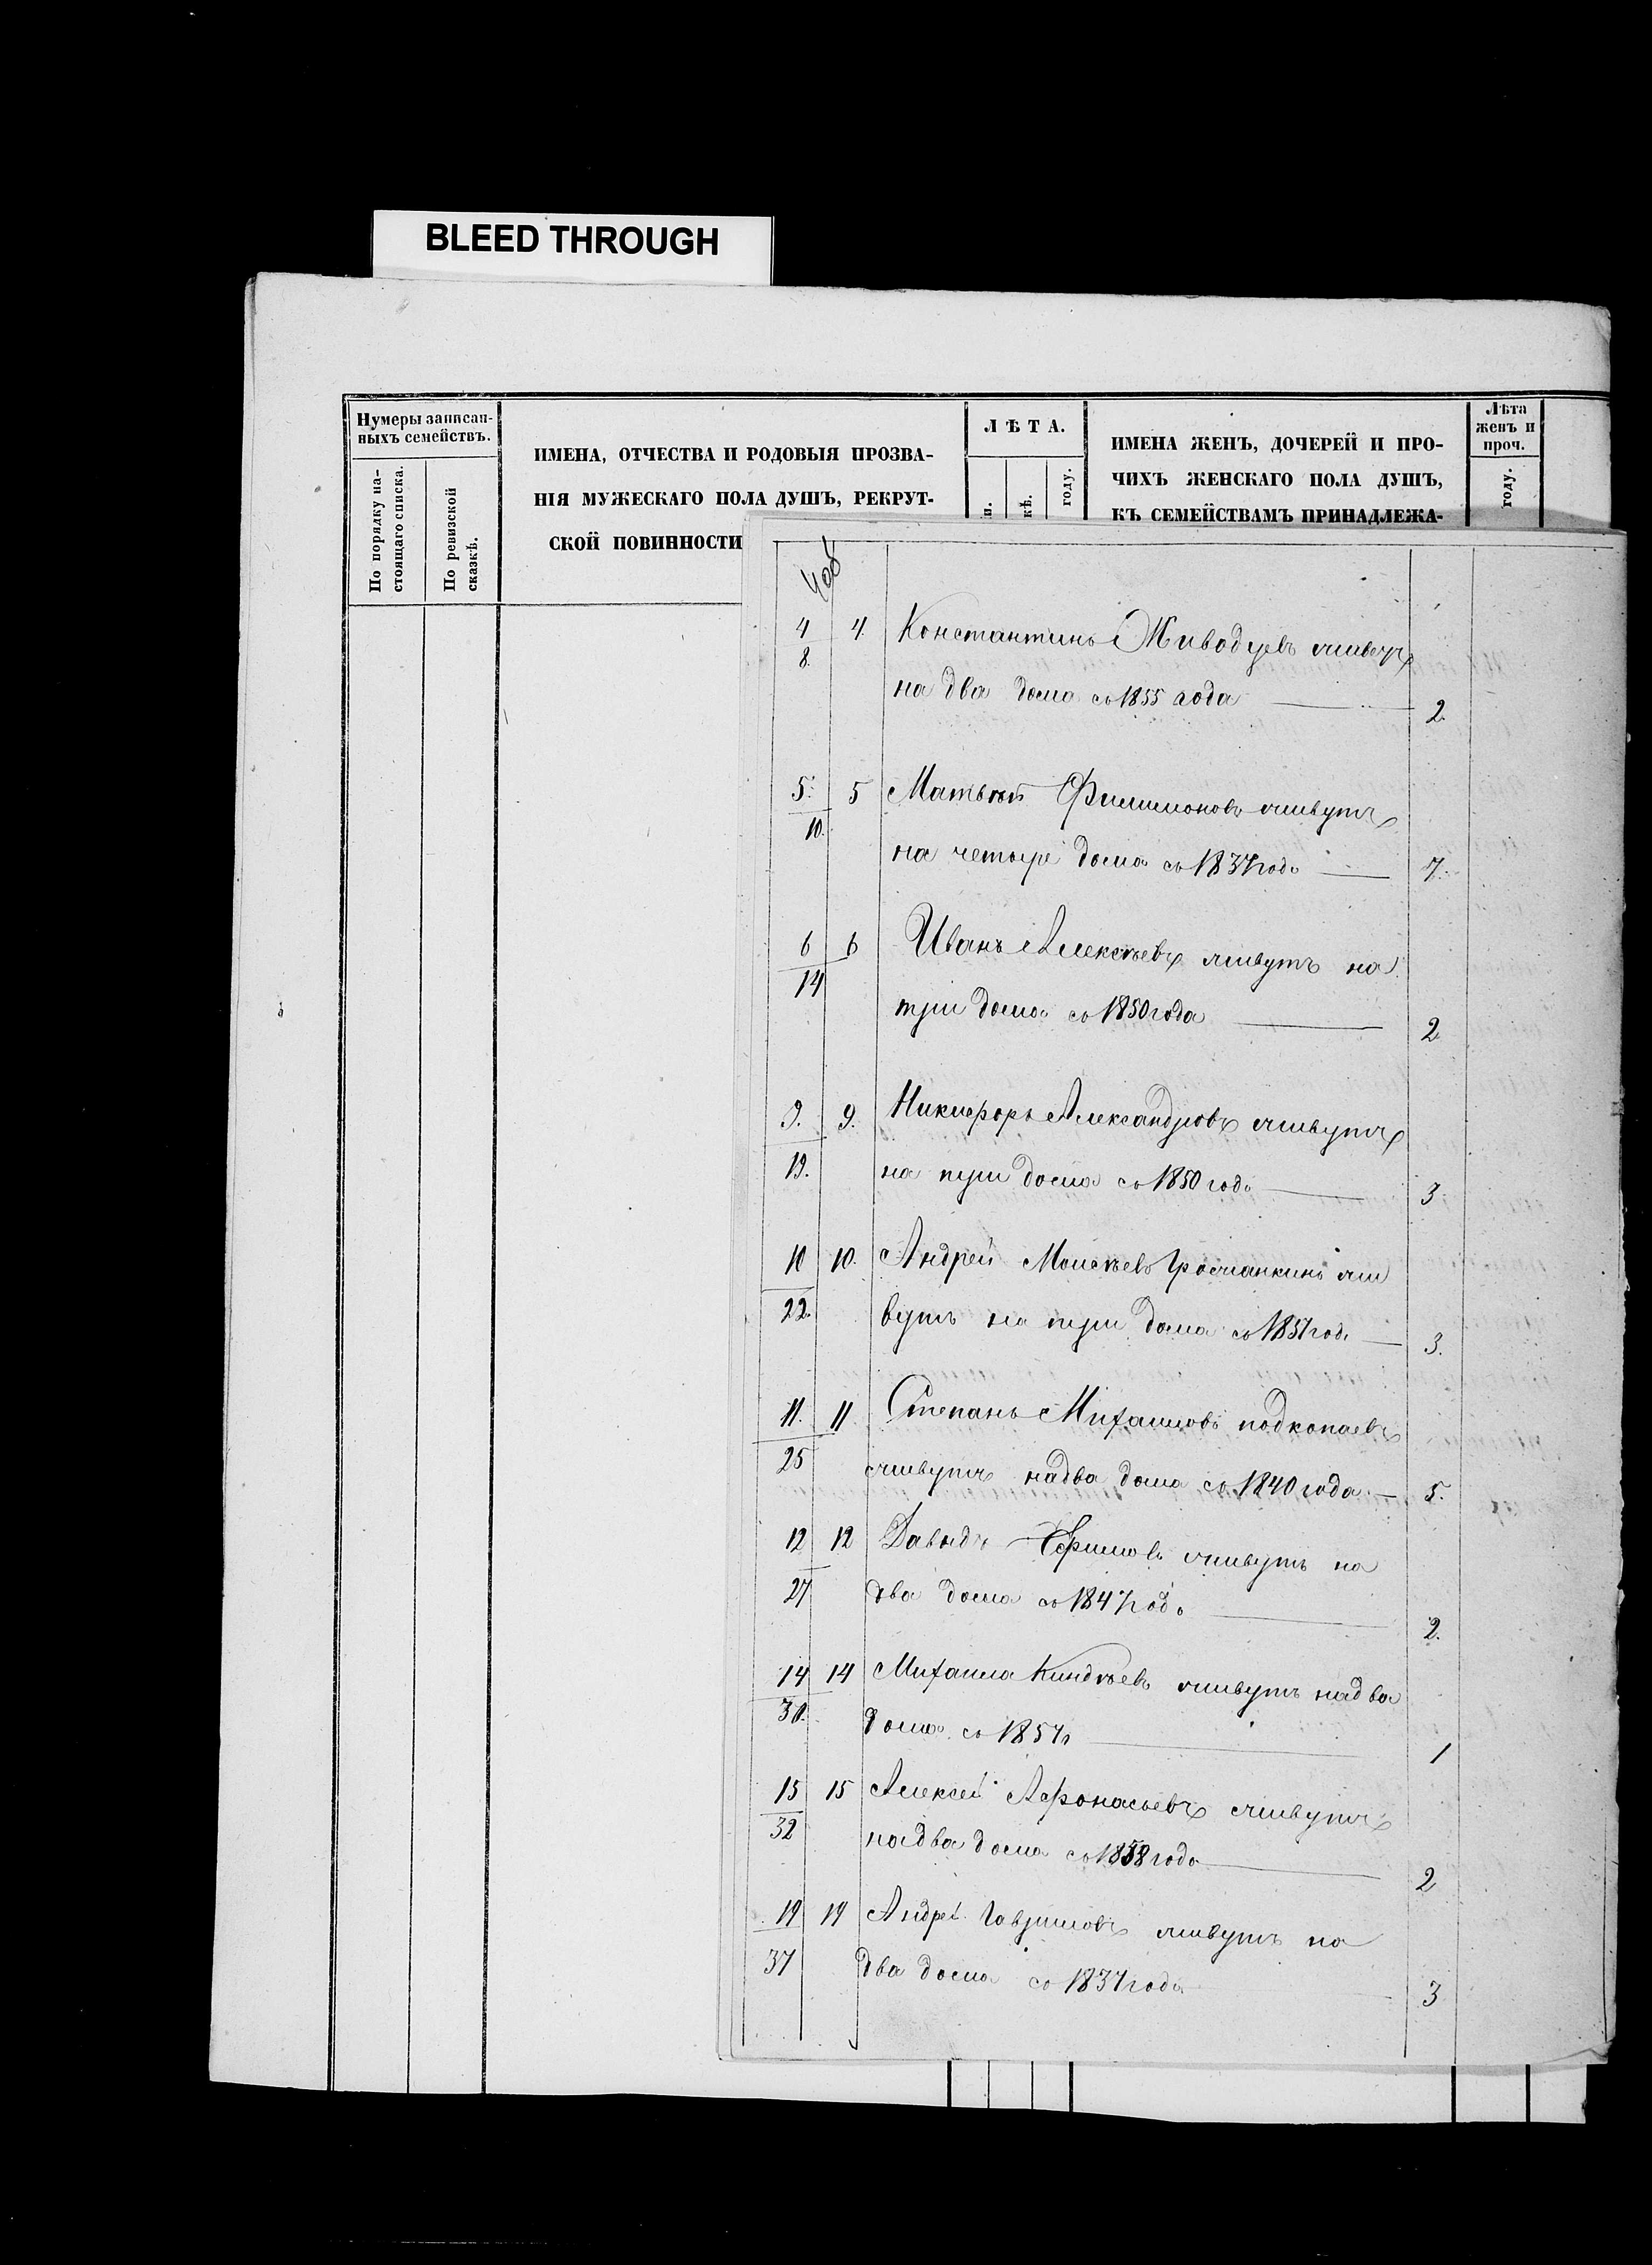 BLEED THROUGH
Нумеры записан-
ныхъ семействъ.
По порядку на-
стоящаго списка.
По ревизской
сказкѣ.
ИМЕНА, ОТЧЕСТВА И РОДОВЫЯ ПРОЗВА-
НІЯ МУЖЕСКАГО ПОЛА ДУШЪ, РЕКРУТ-
СКОЙ ПОВИННОСТИ
ЛѢТА.
и.
кѣ.
году.
ИМЕНА ЖЕНЪ, ДОЧЕРЕЙ И ПРО-
ЧИХЪ ЖЕНСКАГО ПОЛА ДУШЪ,
КЪ СЕМЕЙСТВАМЪ ПРИНАДЛЕЖА-
Лѣта
женъ и
проч.
году.
4 4. Константинъ живутъ
8. на два дома съ 1855 года 2.
5. 5 Матвей Филимоновъ живутъ
10. на четыре дома съ 1837 года 7.
6 6 Иванъ Алексѣевъ живутъ на
14 три дома съ 1850 года 2
9. 9. Никифоръ Александровъ живутъ
19. на три дома съ 1850 года 3
10 10. Андрей Моисѣевъ жи
22. вутъ на три дома съ 1851 года 3.
11. 11 Степанъ Михайловъ подкопаевъ
25 живутъ на два дома съ 1840 года 5.
12 12 Давыдъ Ефимовъ живутъ на
27 два дома съ 1847 года 2.
14 14 Михаила Киндѣевъ живутъ на два
30. дома съ 1857 1
15 15 Алексей Афонасьевъ живутъ
32 на два дома съ 1858 года 2
19 19 Андрей Гавриловъ живутъ на
37 два дома съ 1837 года 3